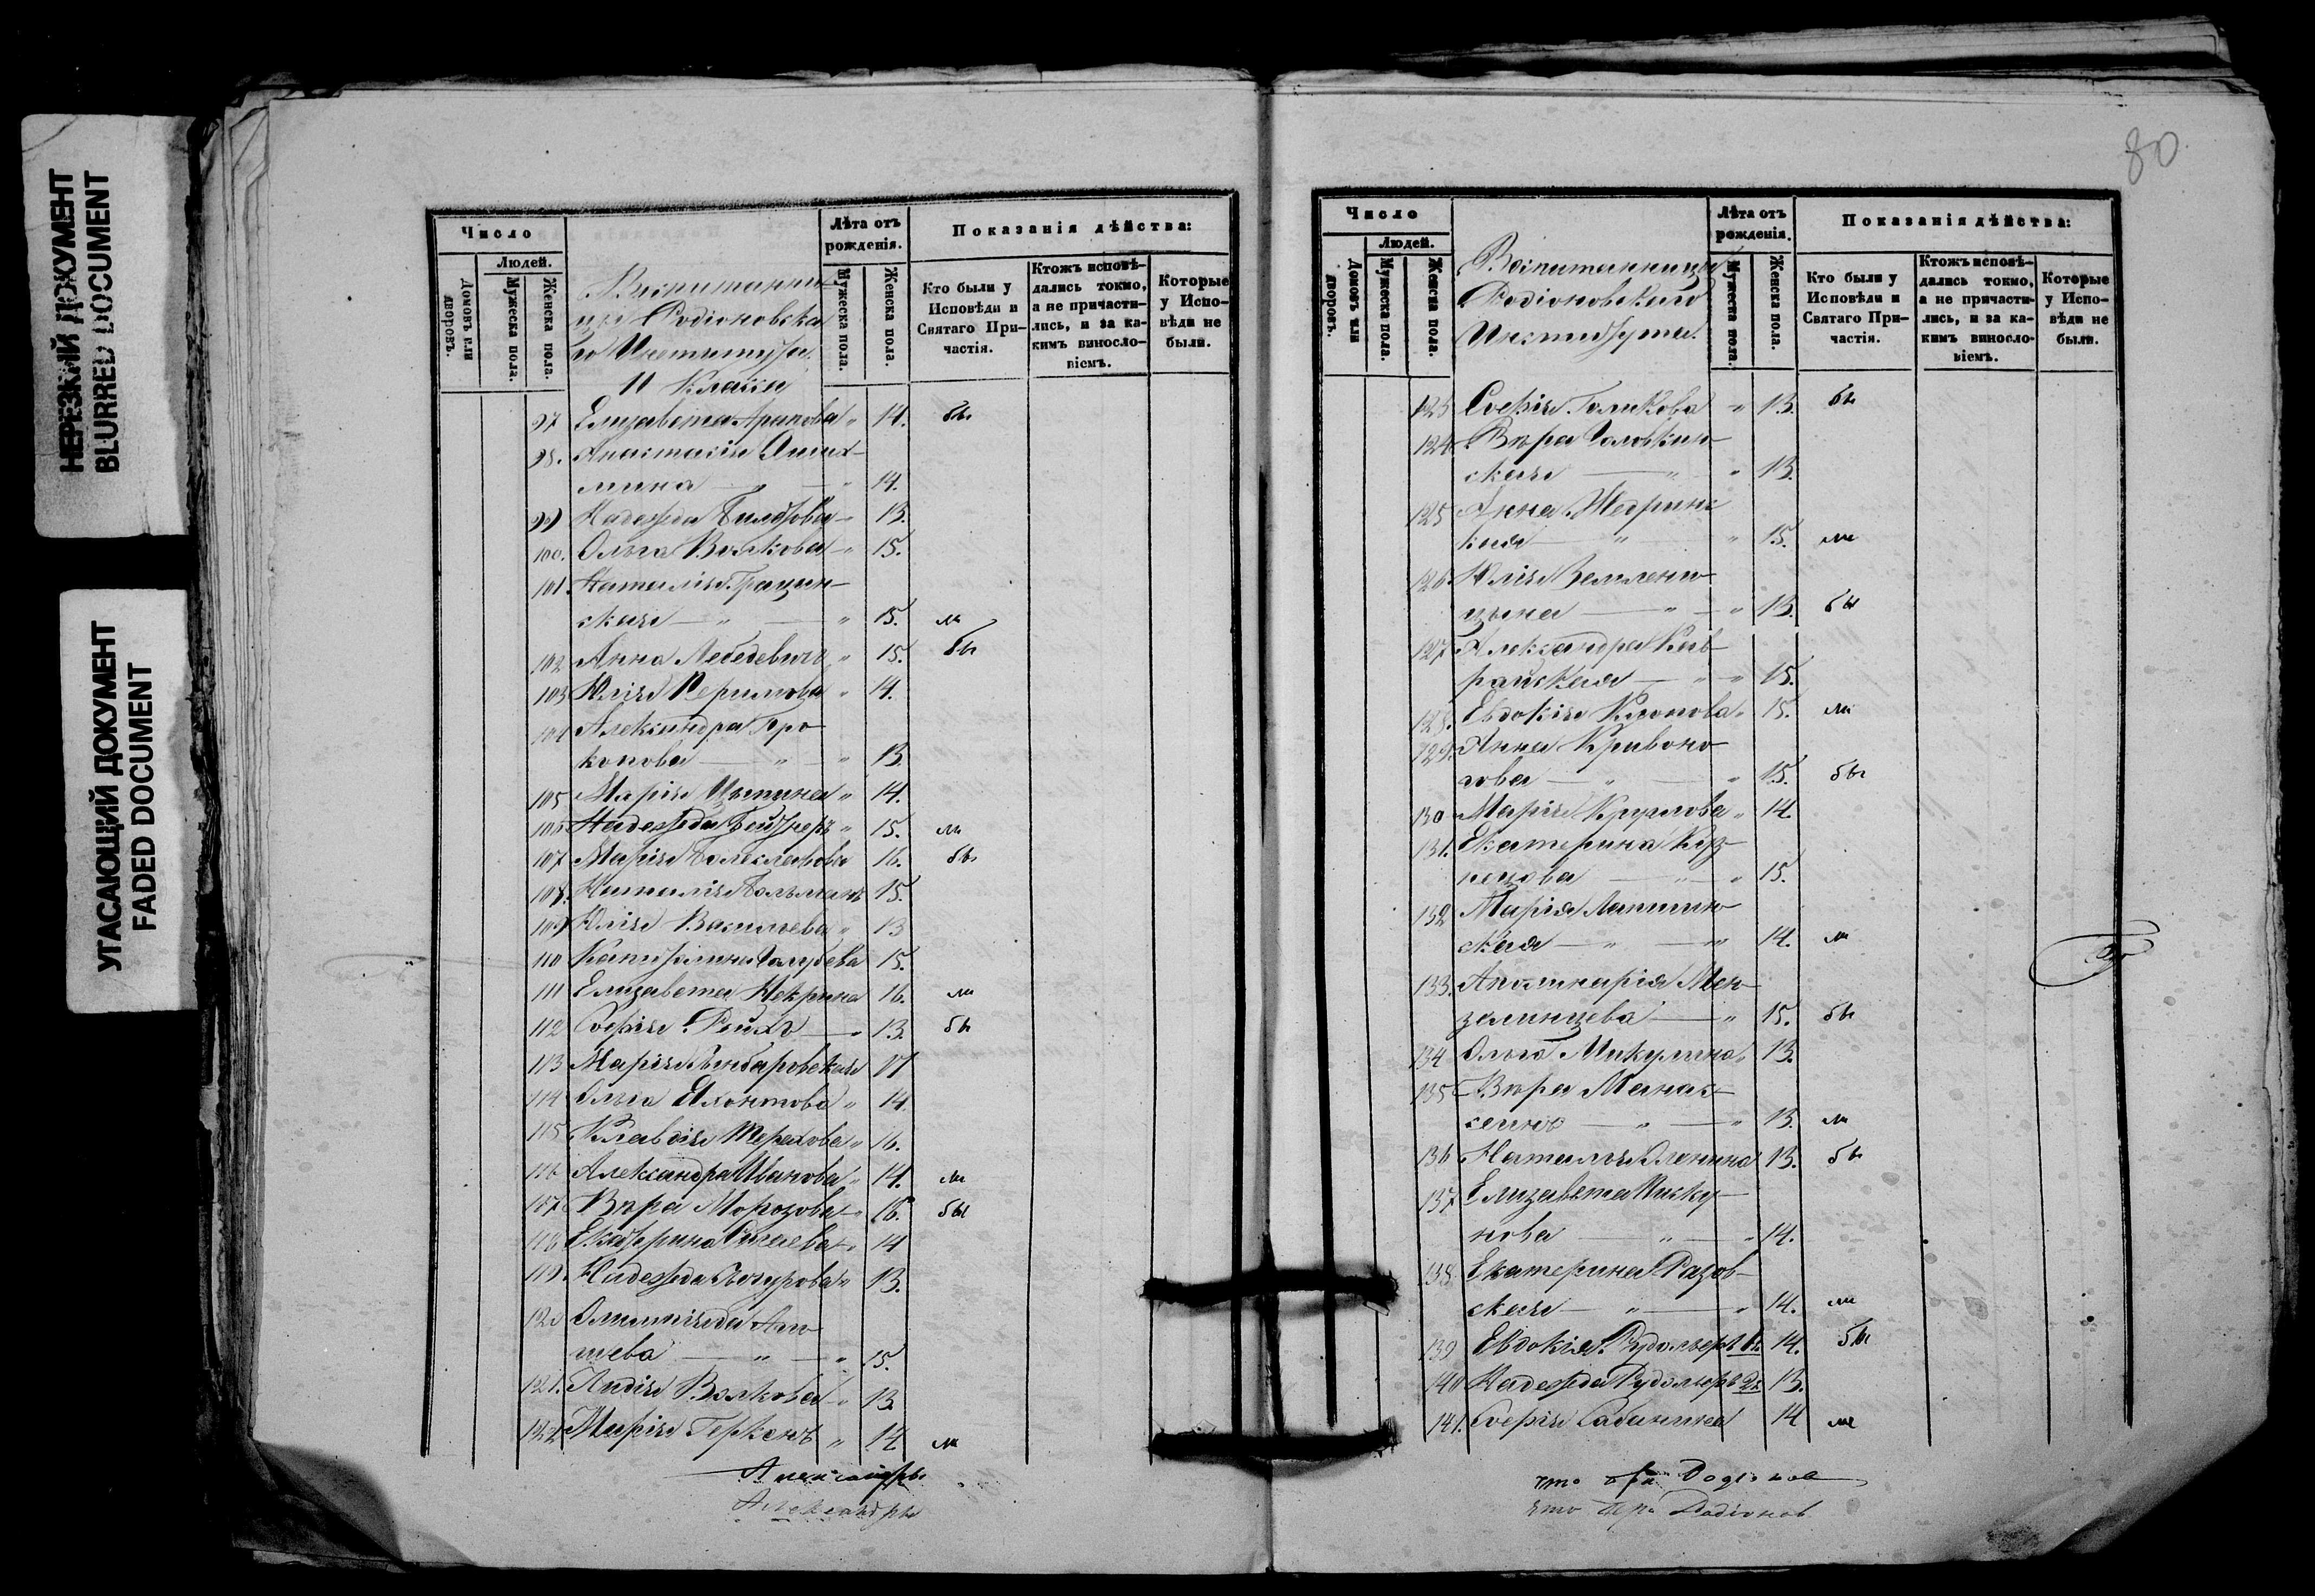 НЕРЕЗКИЙ ДОКУМЕНТ
BLURRED DOCUMENT
УГАСАЮЩИЙ ДОКУМЕНТ
FADED DOCUMENT
Число
Людей.
Домовъ или дворовъ.
Мужеска пола.
Женска пола.
Воспитанни-
цы Родіоновска
го Института.
II Класса
Лѣта отъ рожденія.
Мужеска пола.
Женска пола.
Показанія дѣйства:
Кто были у Исповѣди и Святаго При-частія.
Ктожъ исповѣ-дались токмо, а не причасти-лись, и за ка-кимъ винословіемъ.
Которые у Испо-вѣди не были.
97 Елизавета Арапова " 14. бы
98. Анастасія
мина — " — " 14.
99 Надежда — " 13.
100. Ольга Волкова — " 15.
101. Наталія Грацин-
ская — " — " 15. ли
102 Анна Лебедевичъ " 15. бы
103 Юлія Перимова " 14.
104 Александра Про-
копова — " — " 13.
105 Марія " 14.
106 Надежда " 15. ли
107 Марія 16. бы
108. Наталія 15.
109 Юлія Васильева " 13
110 Голубева 15.
111 Елизавета Некрина 16. ли
112 Софія Рейхъ — " 13. бы
113 Марія 17
114 Ольга Яхонтова " 14
115 Клавдія Терехова " 16.
116 Александра Иванова " 14. ли
117 Вѣра Морозова — " 16. бы
118 Екатерина 14
119. Надежда 13.
120 Олимпіада Али-
шева — " — " 15.
121. Лидія Волкова — " 13.
122 Марія Геркенъ " 14 ли
Александръ
Александръ
80
Число
Людей.
Домовъ или дворовъ.
Мужеска пола.
Женска пола.
Воспитанницы
Родіоновскаго
Института.
Лѣта отъ рожденія.
Мужеска пола.
Женска пола.
Показанія дѣйства:
Кто были у Исповѣди и Святаго При-частія.
Ктожъ исповѣ-дались токмо, а не причасти-лись, и за ка-кимъ винословіемъ.
Которые у Испо-вѣди не были.
123 Софія Голикова " 13. бы
124 Вѣра Головкин-
ская — " " 13.
125 Анна Жедринс
кая — " " 15. ли
126 Юлія Землени-
цына — " — " 13. бы
127 Александра Кав-
райская — " — " 15.
128. Евдокія Клопова " 15. ли
129. Анна Кривоно-
гова — " — " 15. бы
130 Марія Круглова " 14.
131. Екатерина Куз-
нецова — " — " 15.
132 Марія Лапшин-
ская — " — " 14. ли
133. Аполинарія Мен-
зелинцева — " 15. бы
134 Ольга Микулина " 13.
135 Вѣра Манас-
сеинъ — " — " 13. ли
136 Наталья Оленина 13. бы
137 Елизавета Писку-
нова — " — " 14.
138. Екатерина Разов-
ская — " — " 14. ли
139 Евдокія Рудольфъ 1я 14. бы
140 Надежда Рудольфъ 2я 13.
141. Софія Сабанина 14 ли
что при Родіонов
что при Родіонов